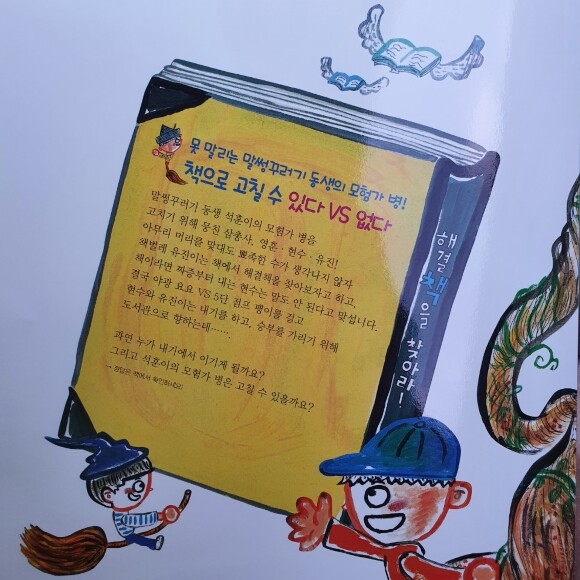 못 말리는 말썽꾸러기 동생의 모험가 병!
책으로 고칠 수 있다 VS 없다
말썽꾸러기 동생 석훈이의 모험가 병을
고치기 위해 뭉친 삼총사, 영훈·현수·유진!
아무리 머리를 맞대도 뾰족한 수가 생각나지 않자
책벌레 유진이는 책에서 해결책을 찾아보자고 하고,
책이라면 짜증부터 내는 현수는 말도 안 된다고 맞섭니다.
결국 야광 요요 VS 5단 점프 팽이를 걸고
현수와 유진이는 내기를 하고, 승부를 가리기 위해
도서관으로 향하는데……
과연 누가 내기에서 이기게 될까요?
그리고 석훈이의 모험가 병은 고칠 수 있을까요?
정답은 책에서 확인하세요!
해결책을 찾아라!